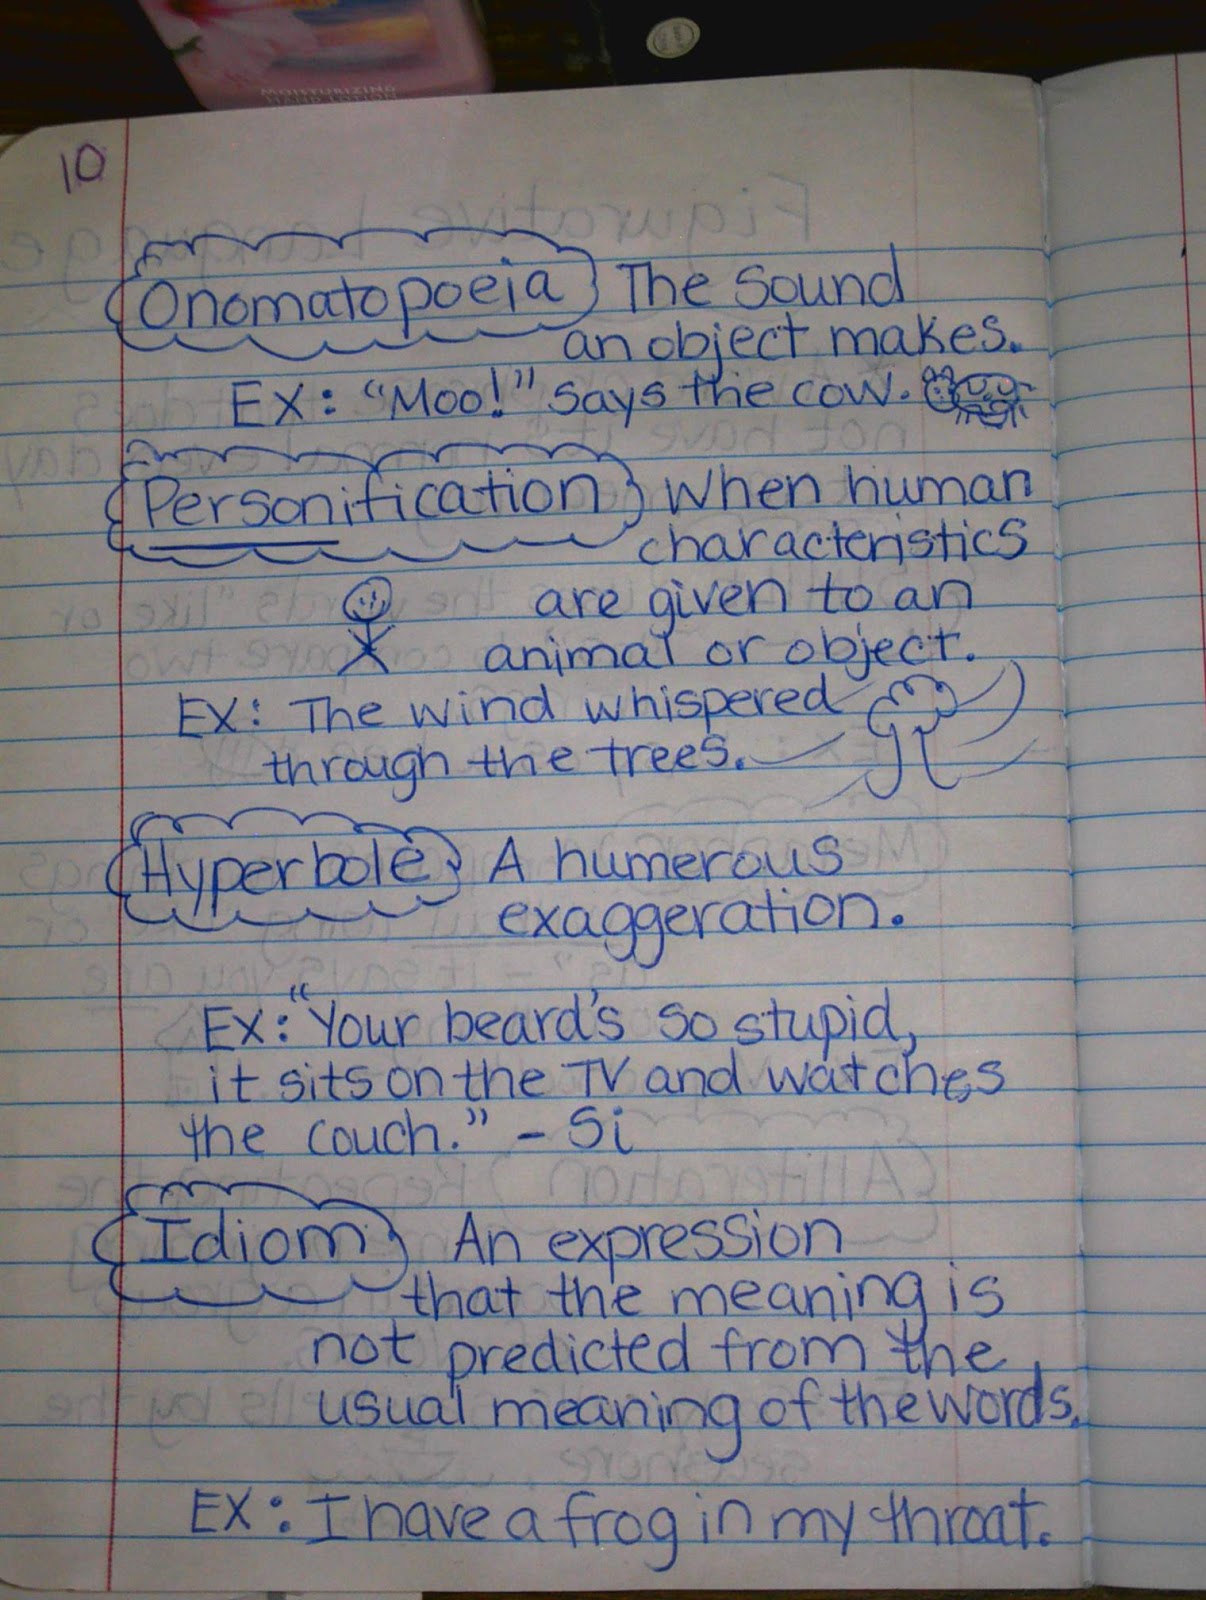 MOISTURIZING
HAND LOTION
10
Onomatopoeia The Sound
an object makes.
EX: "Moo!" says the cow.
Personification When human
characteristics
are given to an
animal or object.
EX: The wind whispered
through the trees.
Hyperbole A humerous
exaggeration.
Ex: "Your beard's so stupid,
it sits on the TV and watches
the couch." - Si
Idiom An expression
that the meaning is
not predicted from the
usual meaning of the words.
EX: I have a frog in my throat.